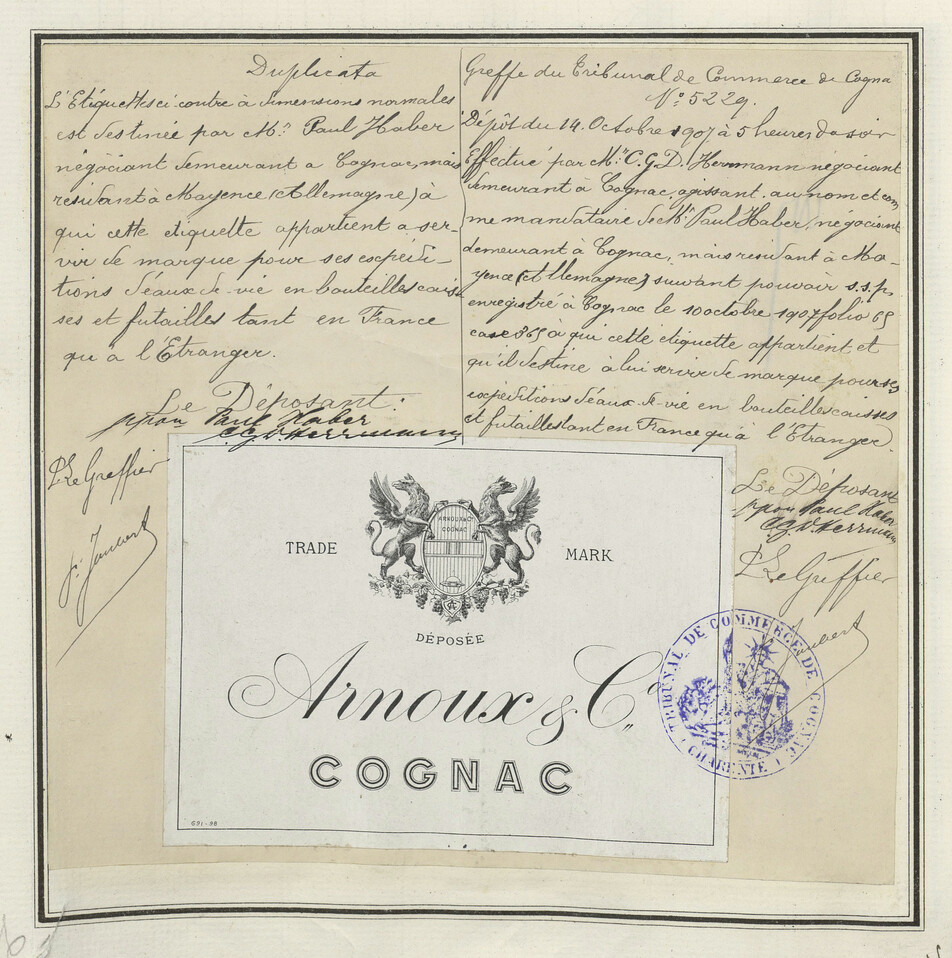 Duplicata
L'Etiquette ci contre à dimensions normales
est destinée par Mr. Paul Haber
négociant demeurant a Cognac, mais
résidant à Mayence (Allemagne) à
qui cette étiquette appartient a ser-
vir de marque pour ses expédi-
tions d'eaux-de-vie en bouteilles cais-
ses et futailles tant en France
qu'a l'Etranger.
Le Déposant:
ppon Paul Haber
C.G.D. Herrmann
Le Greffier
J. Jaubert
Greffe du Tribunal de Commerce de Cogna
No. 5229.
Dépôt du 14. Octobre 1907 à 5 heures du soir
Effectué par Mr. C.G.D. Herrmann négociant
demeurant à Cognac agissant au nom et com
me mandataire de Mr. Paul Haber, négociant
demeurant à Cognac, mais residant à Ma-
yence (Allemagne) suivant pouvoir s.s.p.
enregistré à Cognac le 10 octobre 1907 folio 65
case 365 à qui cette étiquette appartient et
qu'il destine à lui servir de marque pour ses
expéditions d'eaux-de-vie en bouteilles caisses
et futailles tant en France qu'à l'Etranger.
Le Déposant
ppon Paul Haber
C.G.D. Herrmann
Le Greffier
Jaubert
ARNOUX & Co
COGNAC
TRADE MARK
DÉPOSÉE
Arnoux & Co.
COGNAC
691-98
TRIBUNAL DE COMMERCE DE COGNAC
CHARENTE